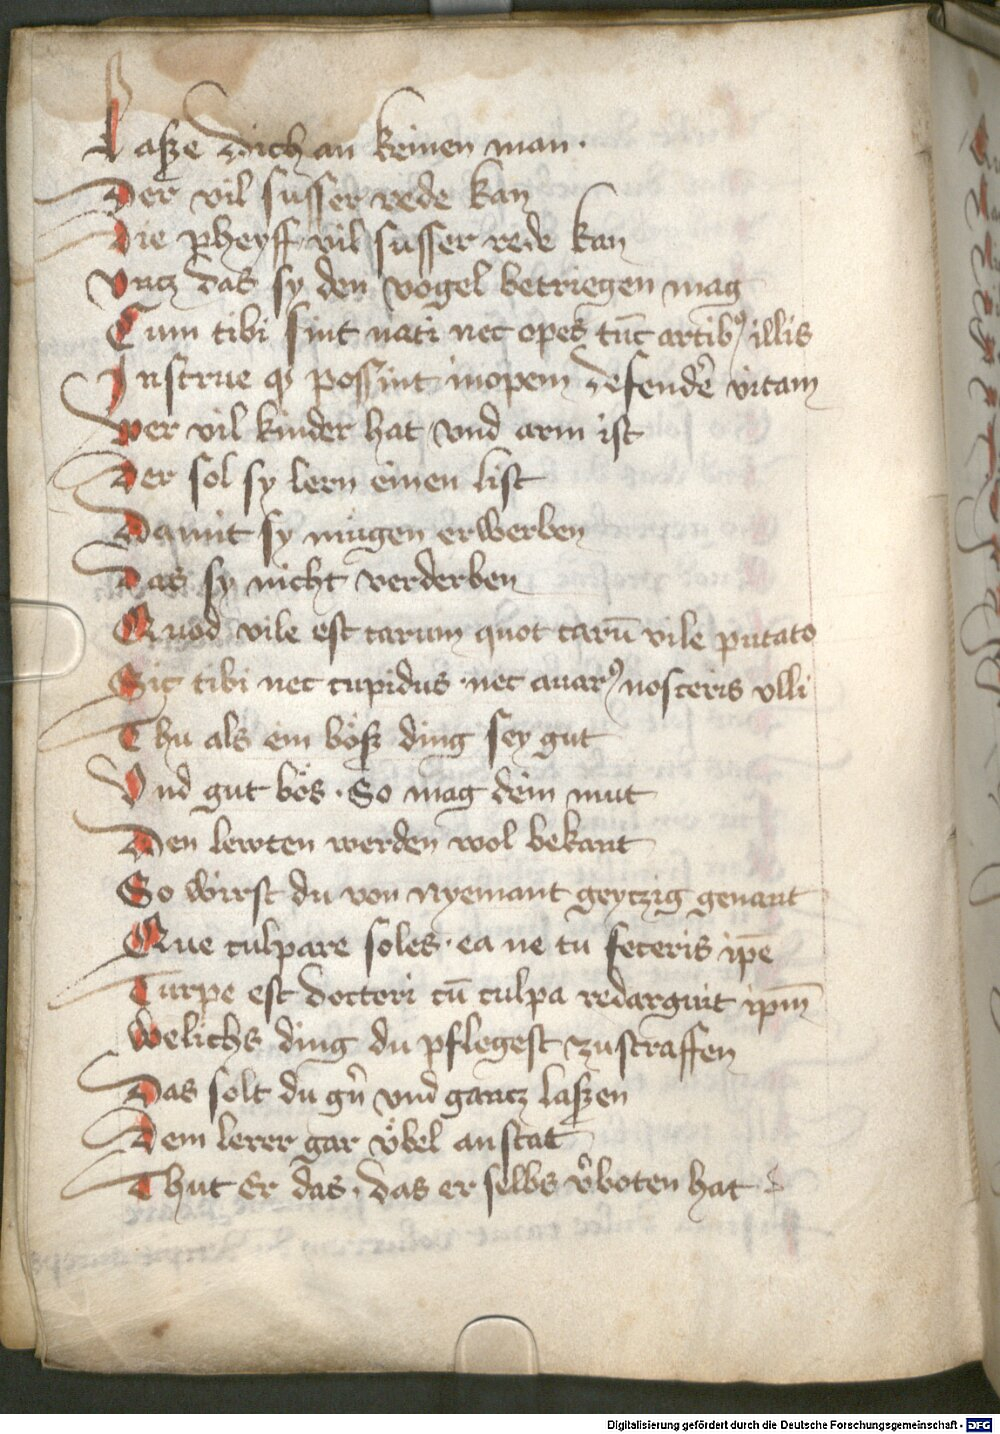 Laße dich an keinen man ·
Der vil susser rede kan
Die pheyff vil susser rede kan
Vncz das sy den vogel betriegen mag
Cum tibi sint nati nec opes tūc artibꝰ illis
Instrue ꝙ possint inopem defendēr vitam
Wer vil kinder hat vnd arm ist
Der sol sy lern einen list
Damit sy mügen erwerben
Das sy nicht verderben
Quod vile est carum quot carū vile putato
Sic tibi nec cupidus · nec auarꝰ nosceris vlli
Thu als ein böß ding sey gut
Vnd gut bös · So mag dein mut
Den lewten werden wol bekant
So wirst du von nyemant geytzig genant
Que culpare soles · ea ne tu feceris ip̄e
Turpe est doctori cū culpa redarguit ip̄m
Welichs ding du pflegest zu straffen
Das solt du gn̄ vnd gantz laßen
Dem lerer gar vͤbel an stat
Thut Er das · das er selbs v̓boten hat
Digitalisierung gefördert durch die Deutsche Forschungsgemeinschaft - DFG